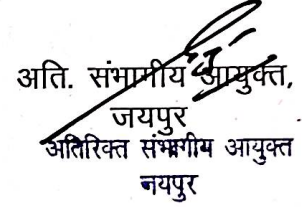 अति. संभागीय आयुक्त,
जयपुर
अतिरिक्त संभागीय आयुक्त
जयपुर